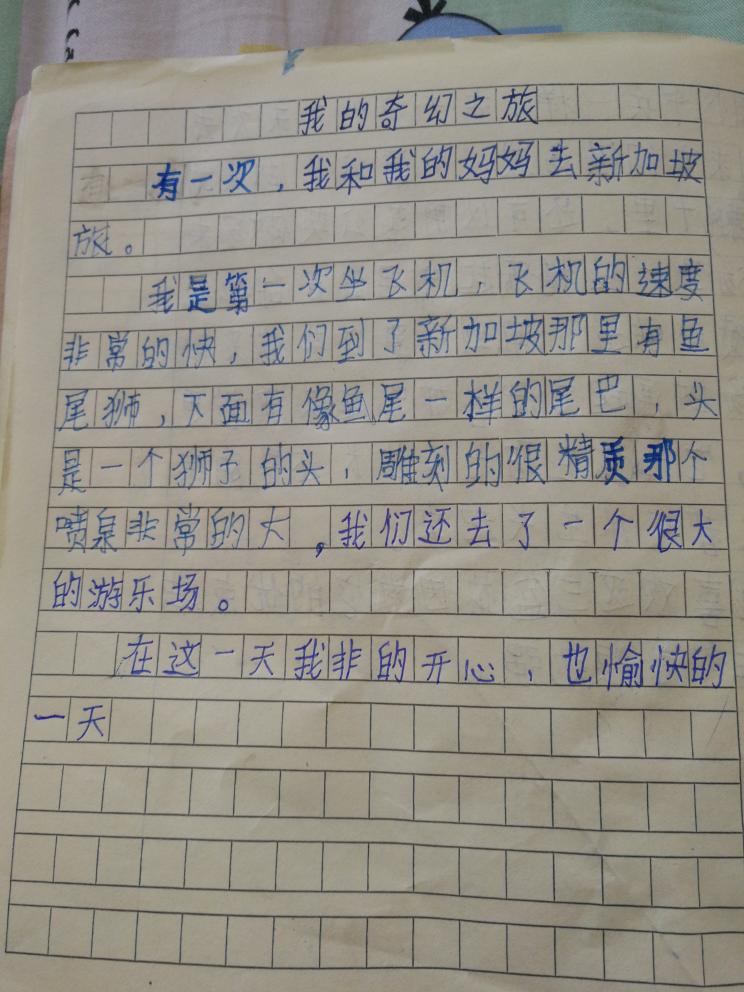 我的奇幻之旅
有一次，我和我的妈妈去新加坡
旅。
我是第一次坐飞机，飞机的速度
非常的快，我们到了新加坡那里有鱼
尾狮，下面有像鱼尾一样的尾巴，头
是一个狮子的头，雕刻的很精质那个
喷泉非常的大，我们还去了一个很大
的游乐场。
在这一天我非的开心，也愉快的
一天